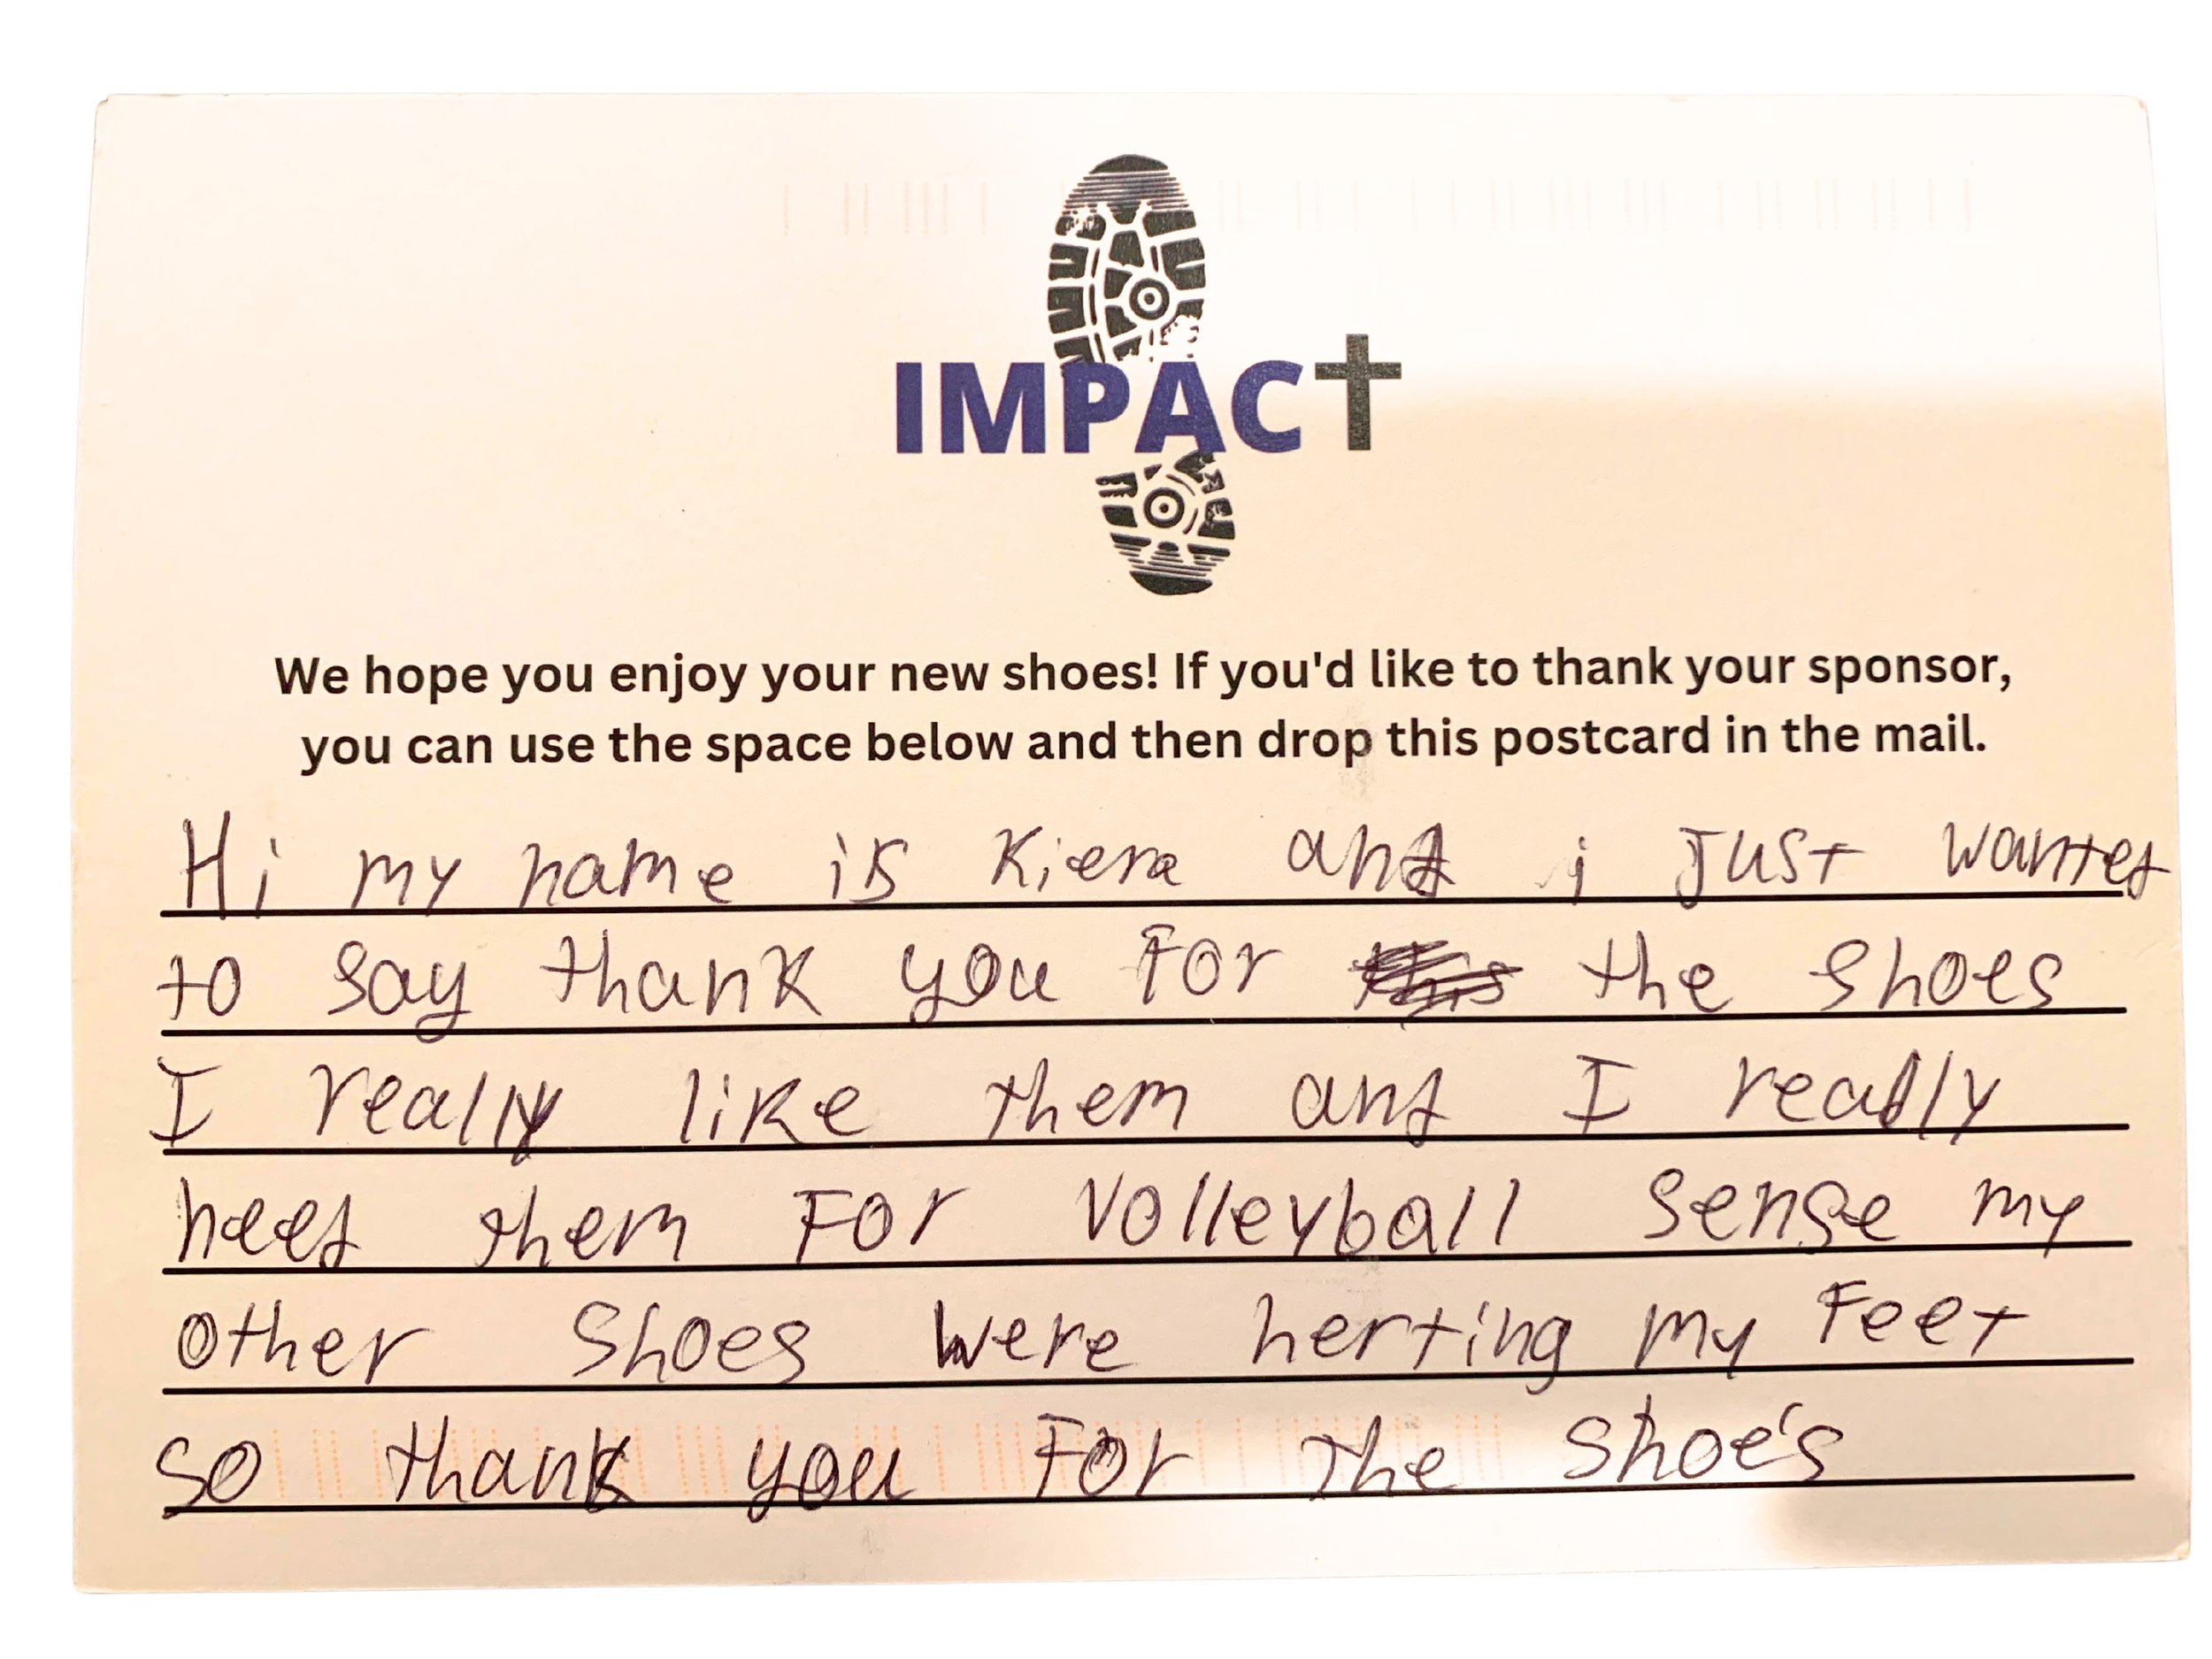 IMPACT
We hope you enjoy your new shoes! If you'd like to thank your sponsor,
you can use the space below and then drop this postcard in the mail.
Hi my name is Kiera and i Just wanted
to say thank you For this the shoes
I really like them and I really
need them For Volleyball sense my
other Shoes were herting my Feet
so thank you For the shoe's